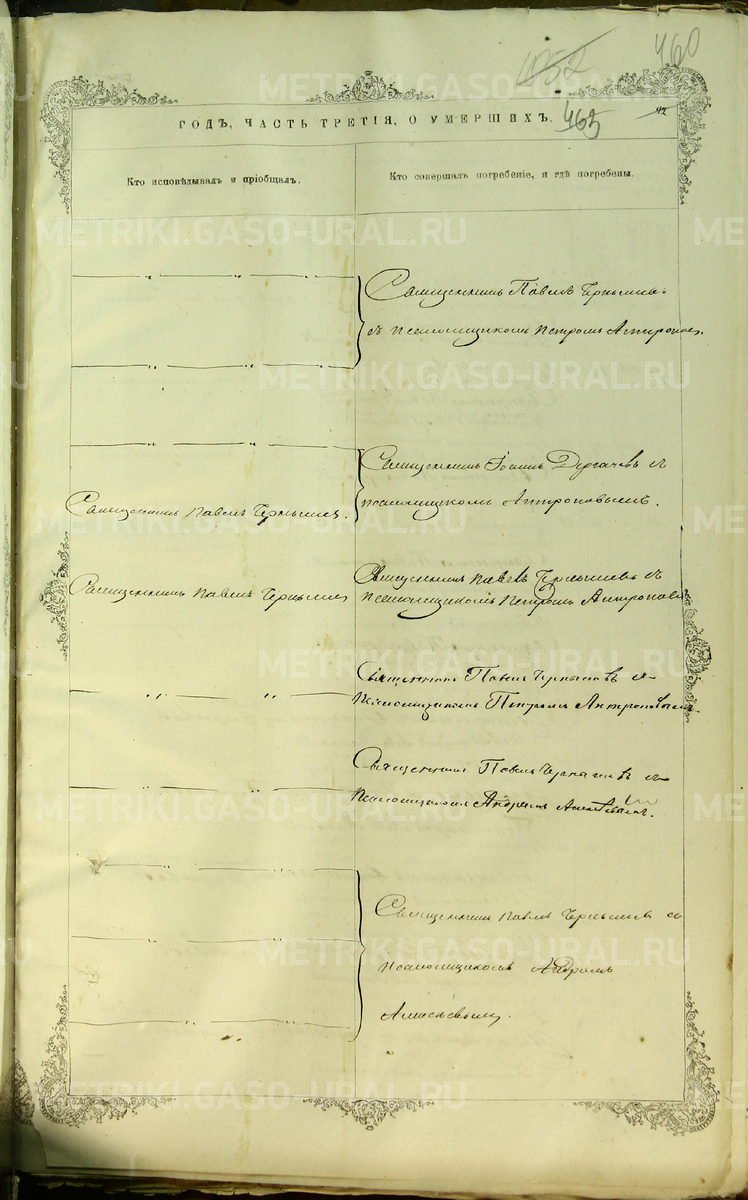 1052
460
ГОДЪ, ЧАСТЬ ТРЕТІЯ, О УМЕРШИХЪ.
465
Кто исповѣдывалъ и пріобщалъ.
Кто совершалъ погребеніе, и гдѣ погребены.
Священникъ Павелъ Чернышев
съ псаломщикомъ Петромъ Антропов
Священникъ Іоаннъ Дергачевъ съ
псаломщикомъ Антроповымъ.
Священникъ Павелъ Чернышев.
Священникъ Павелъ Чернышевъ съ
псаломщикомъ Петромъ Антропов
Священникъ Павелъ Чернышев
Священникъ Павелъ Чернышевъ съ
псаломщикомъ Петромъ Антроповымъ.
Священникъ Павелъ Чернышевъ съ
псаломщикомъ Андреемъ
Священникъ Павелъ Чернышевъ съ
псаломщикомъ Андреемъ
Алексѣевымъ.
METRIKI.GASO-URAL.RU